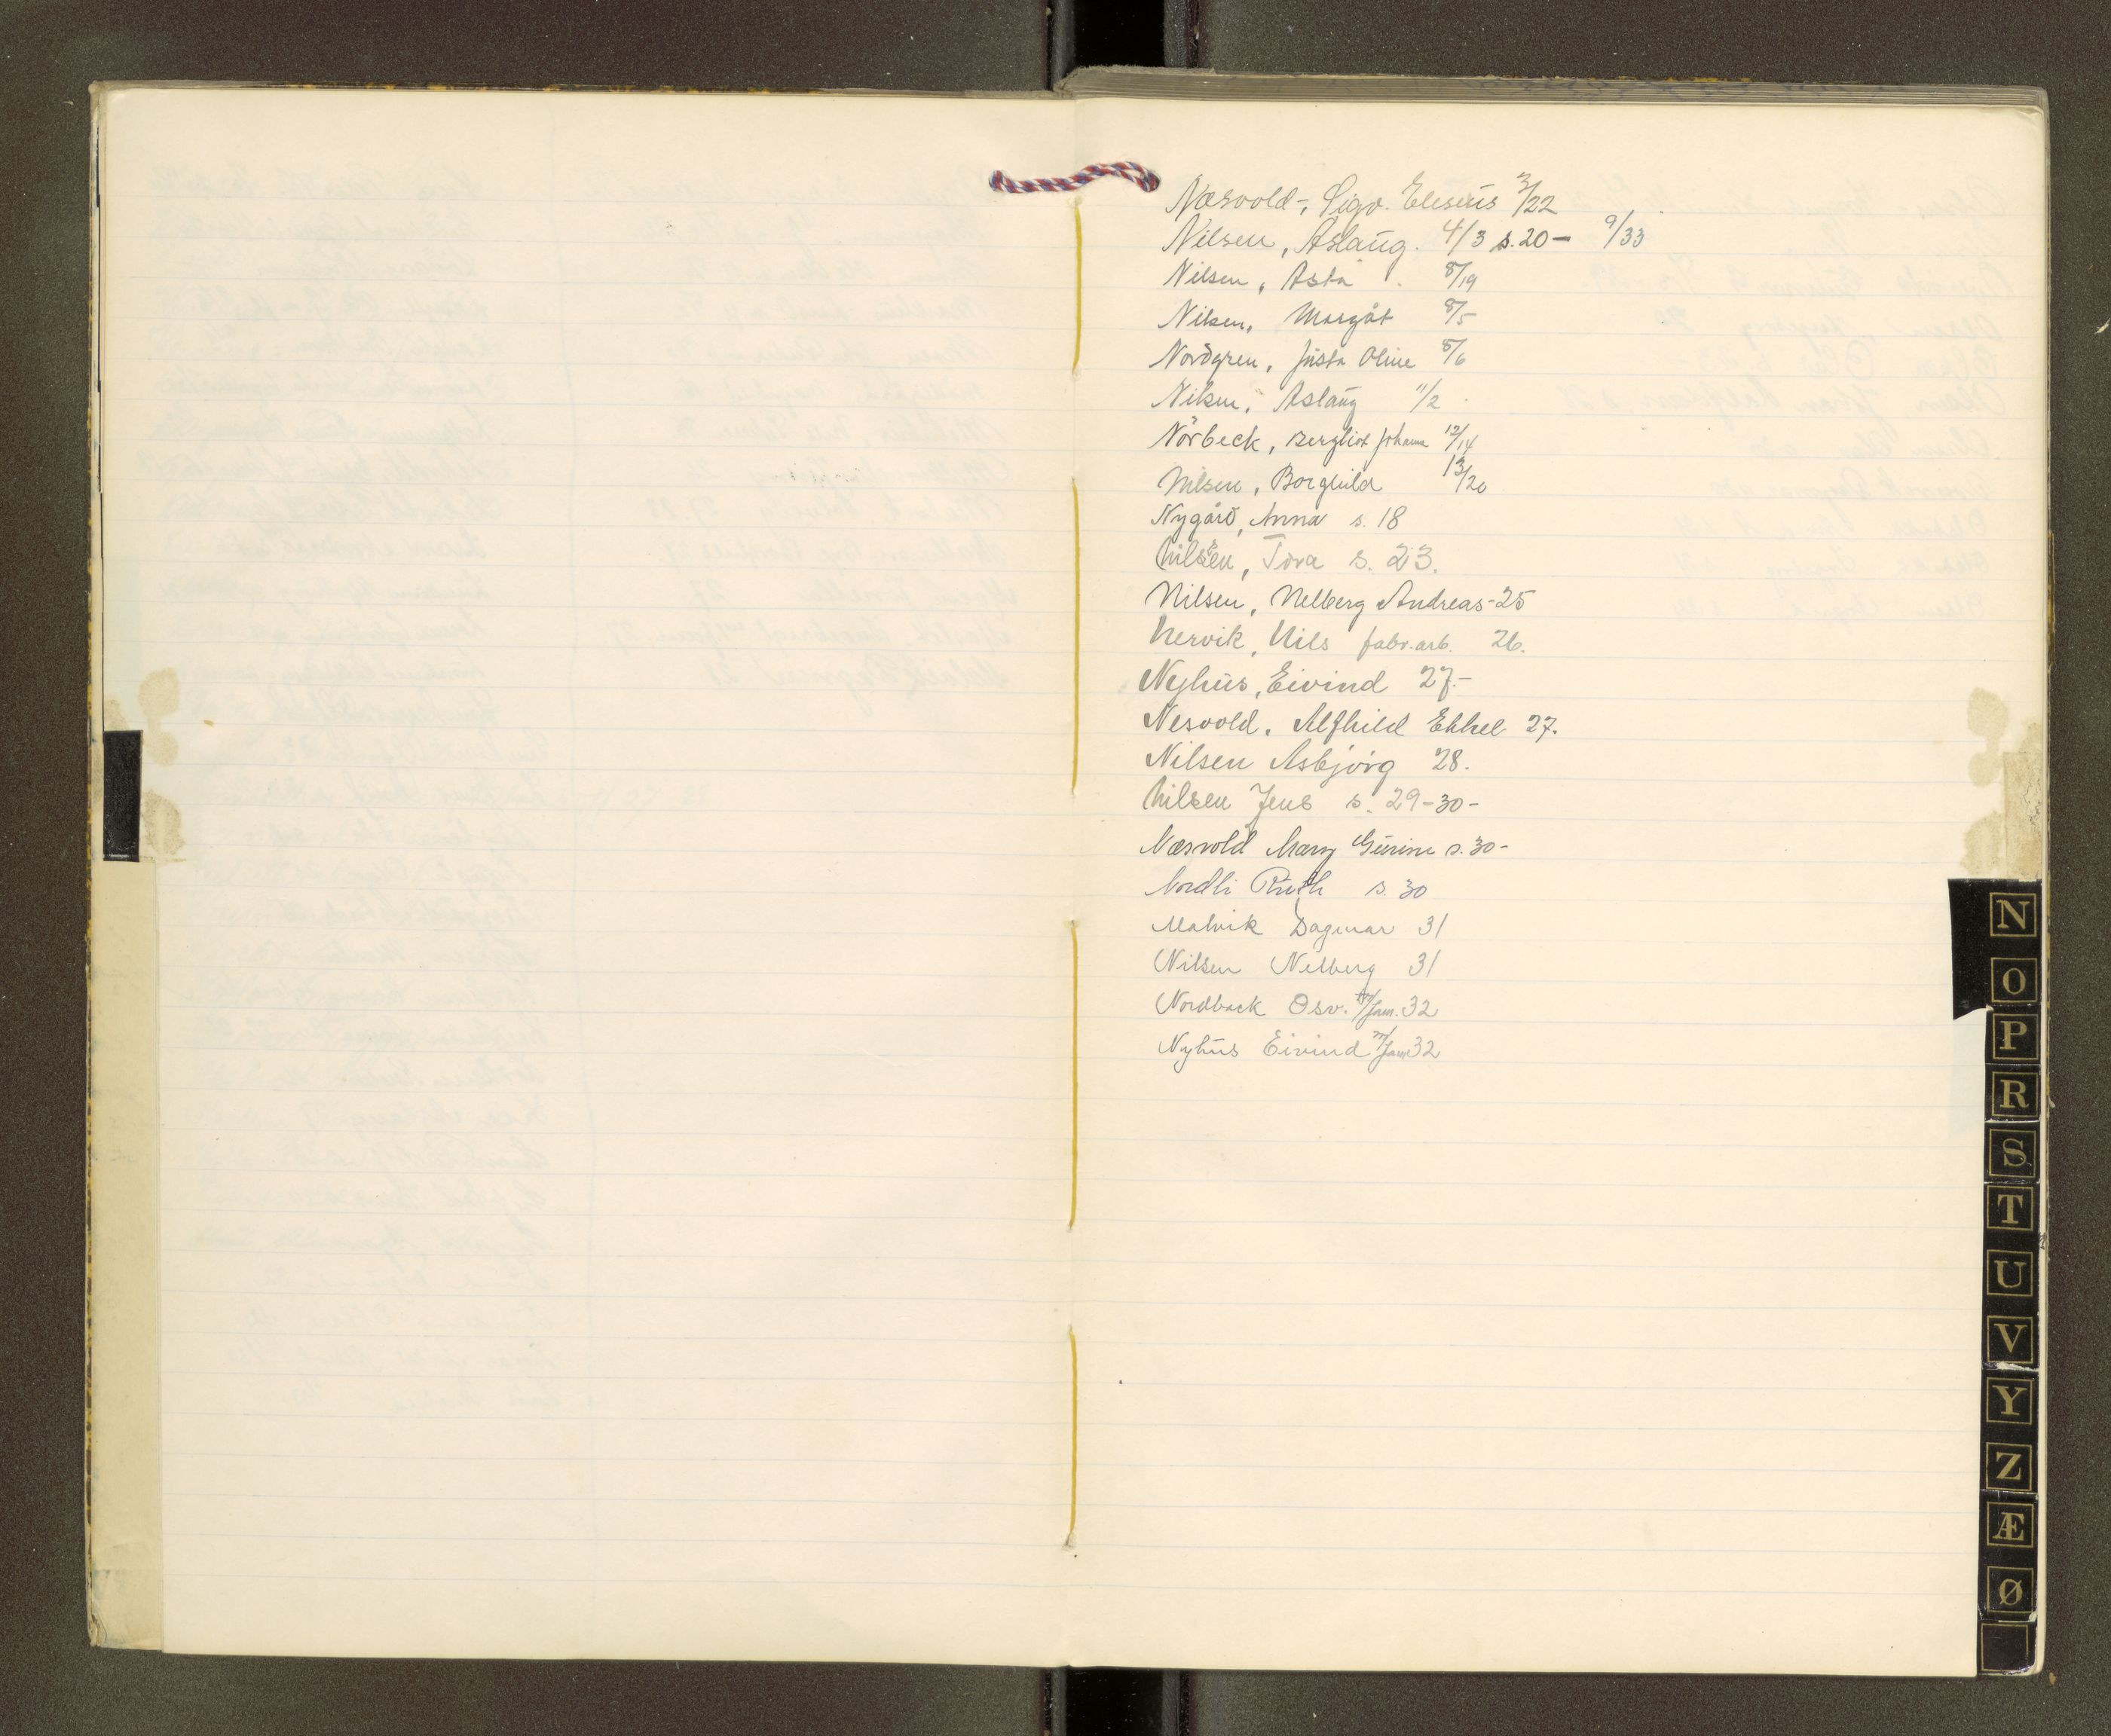 Næsvold-, Sigv. Elesius 3/22
Nilsen, Aslaug. 4/3 s. 20 - 9/33
Nilsen, Asta 8/19
Nilsen, Margåt 8/5
Nordgren, Justa Oline 8/6
Nilsen, Aslaug 11/2
Nörbeck, Bergliot Johanne 12/14
Nilsen, Borghild 13/20
Nygård, Anna s. 18
Nilsen, Tora s. 23.
Nilsen, Nelberg Andreas - 25
Nervik, Nils fabr.arb. 26.
Nyhus, Eivind 27.-
Nesvold, Alfhild Ekhel 27.
Nilsen Asbjörg 28.
Nilsen Jens s. 29-30-
Næsvold Mary Gurine s. 30-
Nordli Ruth s. 30
Malvik Dagmar 31
Nilsen Nelberg 31
Nordback Osv. Jan. 32
Nyhus Eivind Jan 32
N
O
P
R
S
T
U
V
Y
Z
Æ
Ø